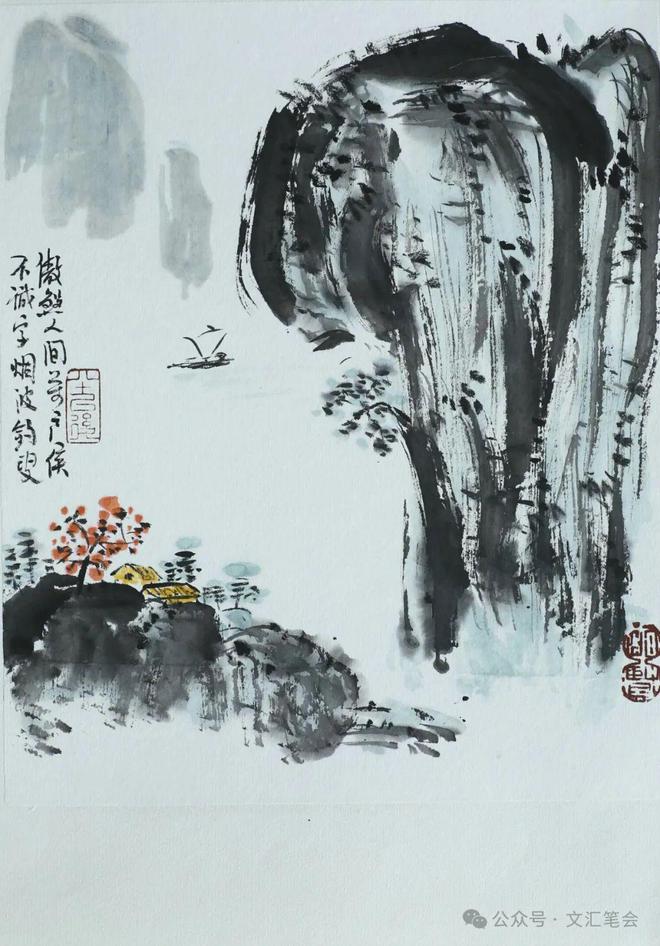 傲煞人间萬户侯
不識字烟波钓叟
公众号 · 文汇笔会